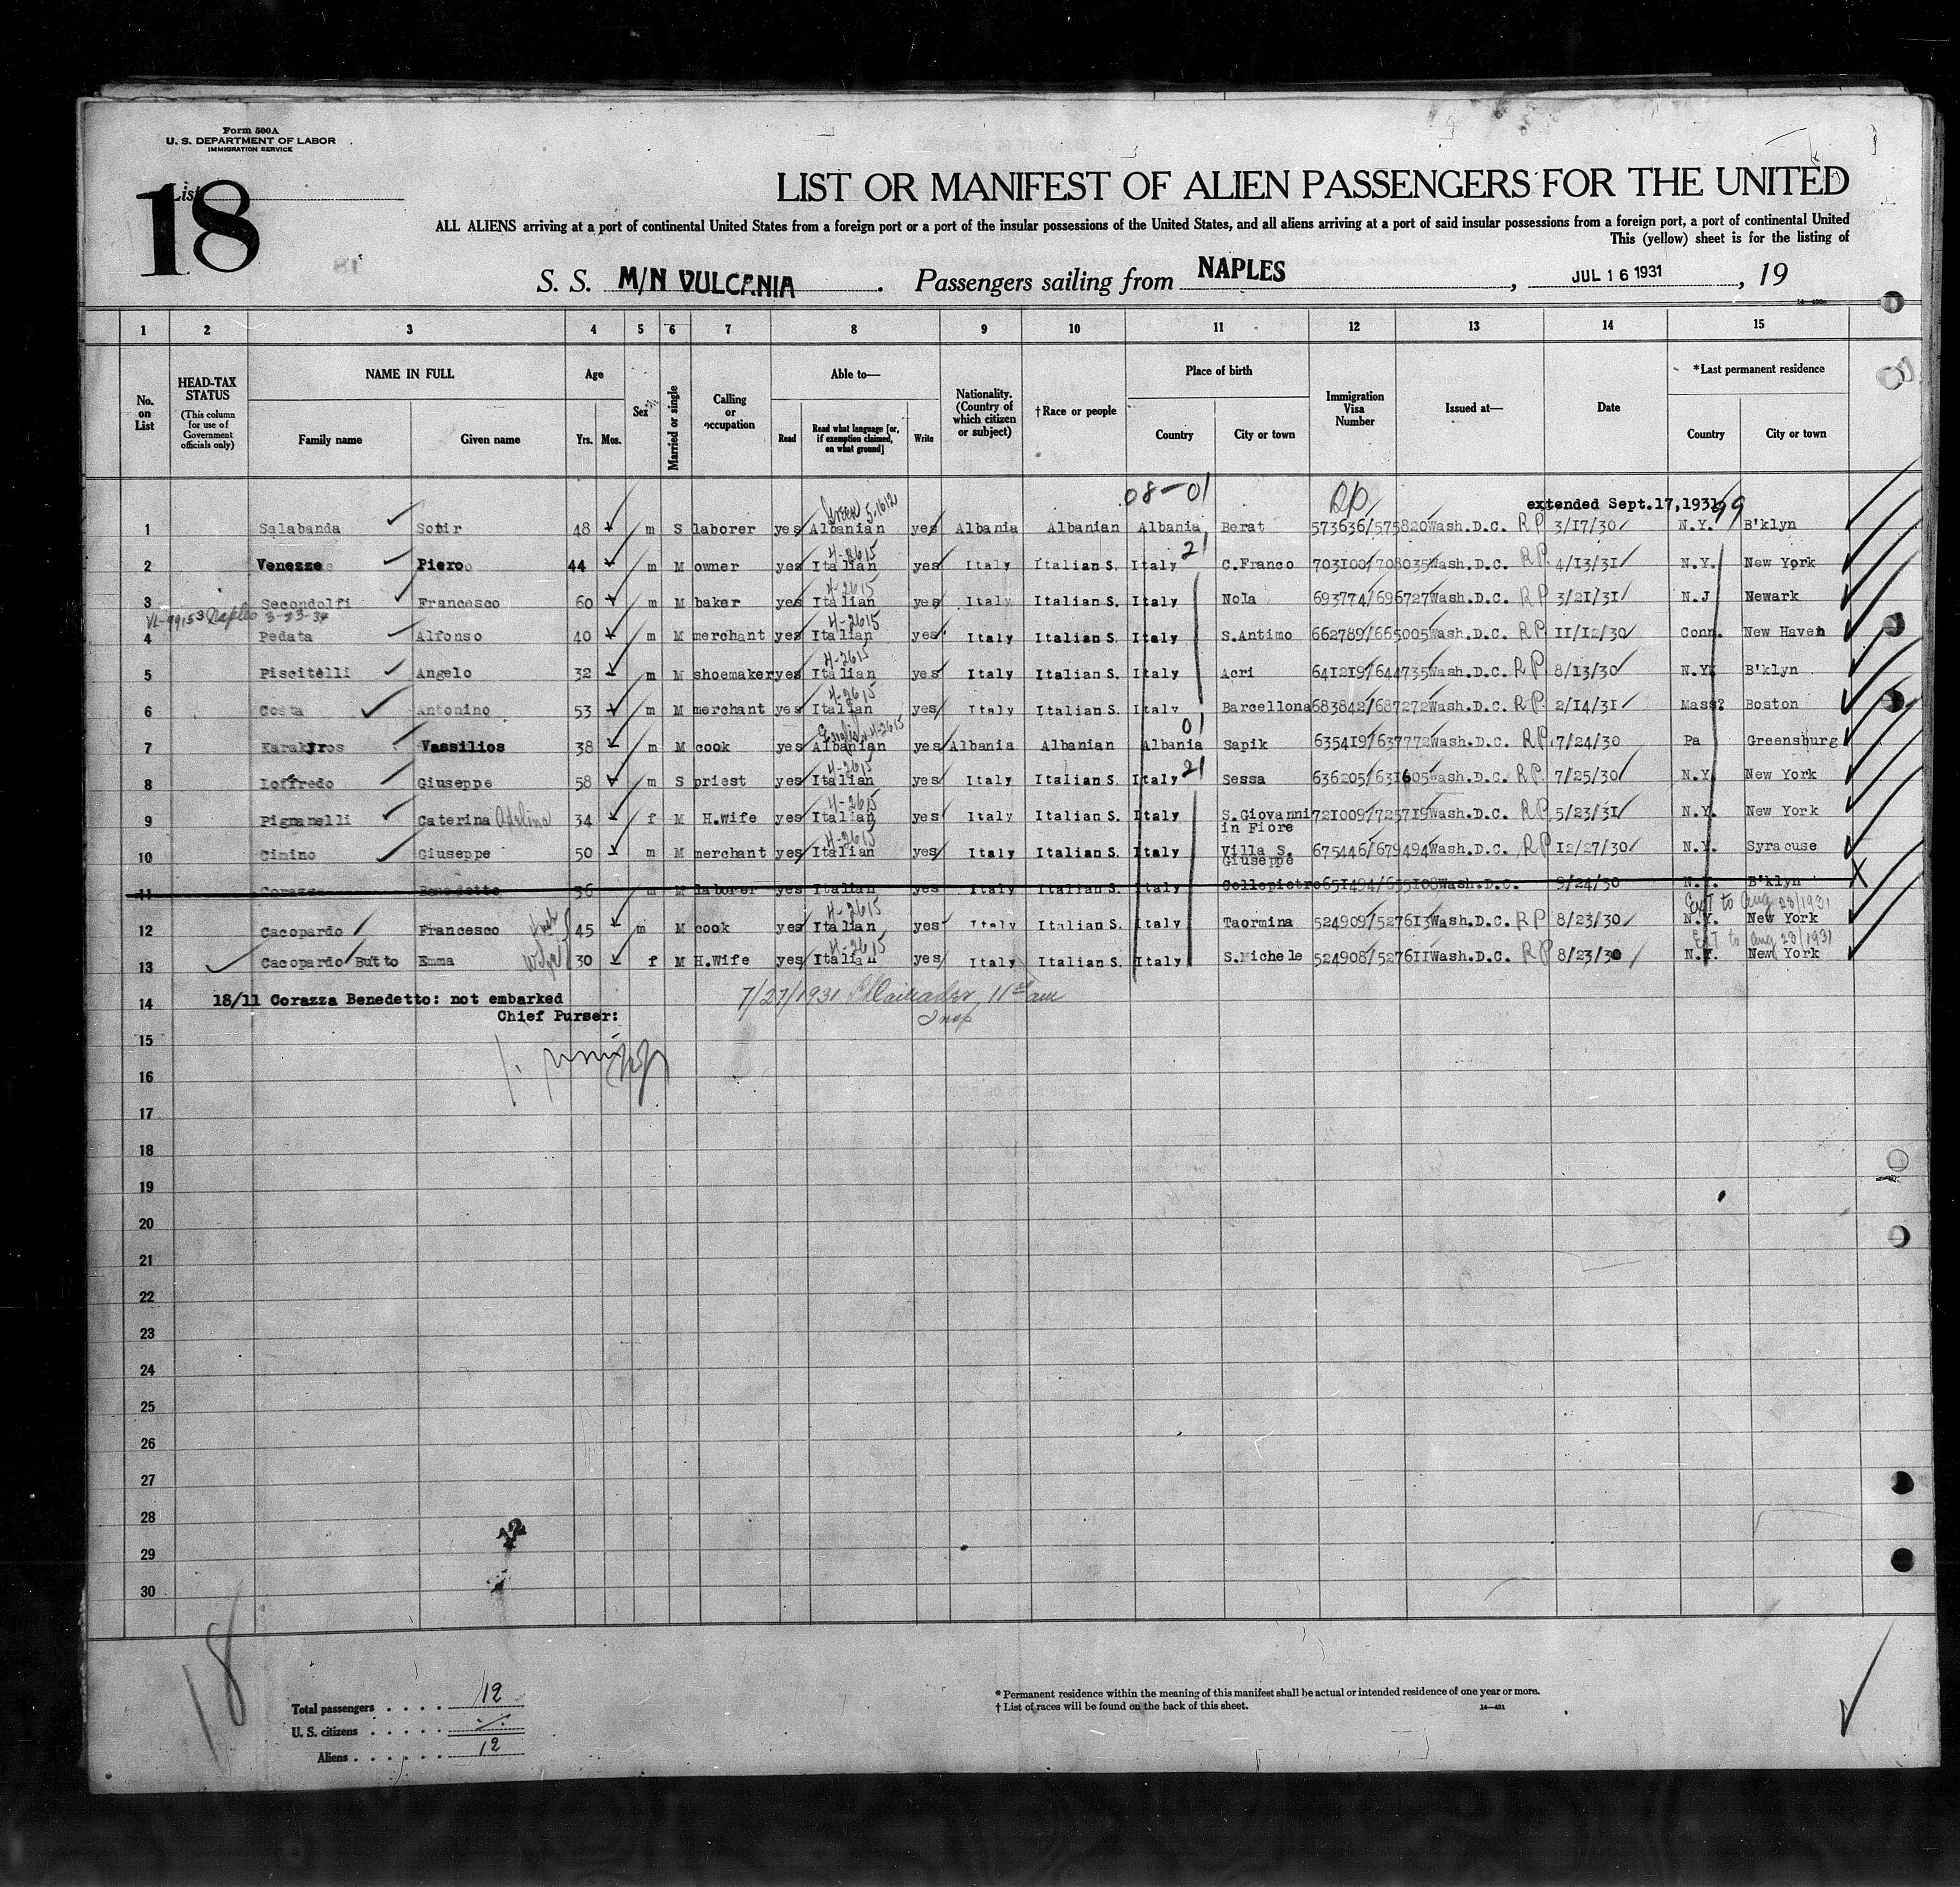 Form 500A
U. S. DEPARTMENT OF LABOR
IMMIGRATION SERVICE
List 18
LIST OR MANIFEST OF ALIEN PASSENGERS FOR THE UNITED
ALL ALIENS arriving at a port of continental United States from a foreign port or a port of the insular possessions of the United States, and all aliens arriving at a port of said insular possessions from a foreign port, a port of continental United
This (yellow) sheet is for the listing of
S. S. M/N VULCANIA . Passengers sailing from NAPLES , JUL 16 1931 , 19
1 2 3 4 5 6 7 8 9 10 11 12 13 14 15
No. on List
HEAD-TAX STATUS (This column for use of Government officials only)
NAME IN FULL Family name Given name
Age Yrs. Mos.
Sex
Married or single
Calling or occupation
Able to— Read Read what language [or, if exemption claimed, on what ground] Write
Nationality. (Country of which citizen or subject)
†Race or people
Place of birth Country City or town
Immigration Visa Number
Issued at—
Date
*Last permanent residence Country City or town
08-01 extended Sept.17,1931 99
1 Salabanda Sotir 48 m S laborer yes Albanian 5-1612 yes Albania Albanian Albania Berat 573636/575820 Wash.D.C. RP 3/17/30 N.Y. B'klyn
2 Venezze Piero 44 m M owner yes Italian 4-2615 yes Italy Italian S. Italy 21 C.Franco 703100/708035 Wash.D.C. RP 4/13/31 N.Y. New York
3 Secondolfi Francesco 60 m M baker yes Italian 4-2615 yes Italy Italian S. Italy Nola 693774/696727 Wash.D.C. RP 3/21/31 N.J Newark
Naples 3-23-34
4 Pedata Alfonso 40 m M merchant yes Italian 4-2615 yes Italy Italian S. Italy S.Antimo 662789/665005 Wash.D.C. RP 11/12/30 Conn. New Haven
5 Piscitelli Angelo 32 m M shoemaker yes Italian 4-2615 yes Italy Italian S. Italy Acri 641219/644735 Wash.D.C. RP 8/13/30 N.Y. B'klyn
6 Costa Antonino 53 m M merchant yes Italian 4-2615 yes Italy Italian S. Italy Barcellona 683842/687272 Wash.D.C. RP 2/14/31 Mass? Boston
7 Karakyros Vassilios 38 m M cook yes Albanian English 4-2615 yes Albania Albanian Albania 01 Sapik 635419/637772 Wash.D.C. RP 7/24/30 Pa Greensburg
8 Ioffredo Giuseppe 58 m S priest yes Italian 4-2615 yes Italy Italian S. Italy 21 Sessa 636205/631605 Wash.D.C. RP 7/25/30 N.Y. New York
9 Pignanelli Caterina Adelina 34 f M H.wife yes Italian 4-2615 yes Italy Italian S. Italy S.Giovanni in Fiore 721009/725719 Wash.D.C. RP 5/23/31 N.Y. New York
10 Cimino Giuseppe 50 m M merchant yes Italian 4-2615 yes Italy Italian S. Italy Villa S. Giuseppe 675446/679494 Wash.D.C. RP 12/27/30 N.Y. Syracuse
11 Corazza Benedetto 36 m M laborer yes Italian yes Italy Italian S. Italy Collepietro 651494/655108 Wash.D.C. 9/24/30 N.Y. B'klyn X
Ext to Aug 23/1931
12 Cacopardo Francesco 45 m M cook yes Italian 4-2615 yes Italy Italian S. Italy Taormina 524909/527613 Wash.D.C. RP 8/23/30 N.Y. New York
Ext to Aug 23/1931
13 Cacopardo Butto Emma wife 30 f M H.Wife yes Italian 4-2615 yes Italy Italian S. Italy S.Michele 524908/527611 Wash.D.C. RP 8/23/30 N.Y. New York
14 18/11 Corazza Benedetto: not embarked 7/27/1931 11 am
Chief Purser: Insp
15
16
17
18
19
20
21
22
23
24
25
26
27
28
29
30
18
Total passengers . . . . 12
U. S. citizens . . . . .
Aliens . . . . . . 12
* Permanent residence within the meaning of this manifest shall be actual or intended residence of one year or more.
† List of races will be found on the back of this sheet.